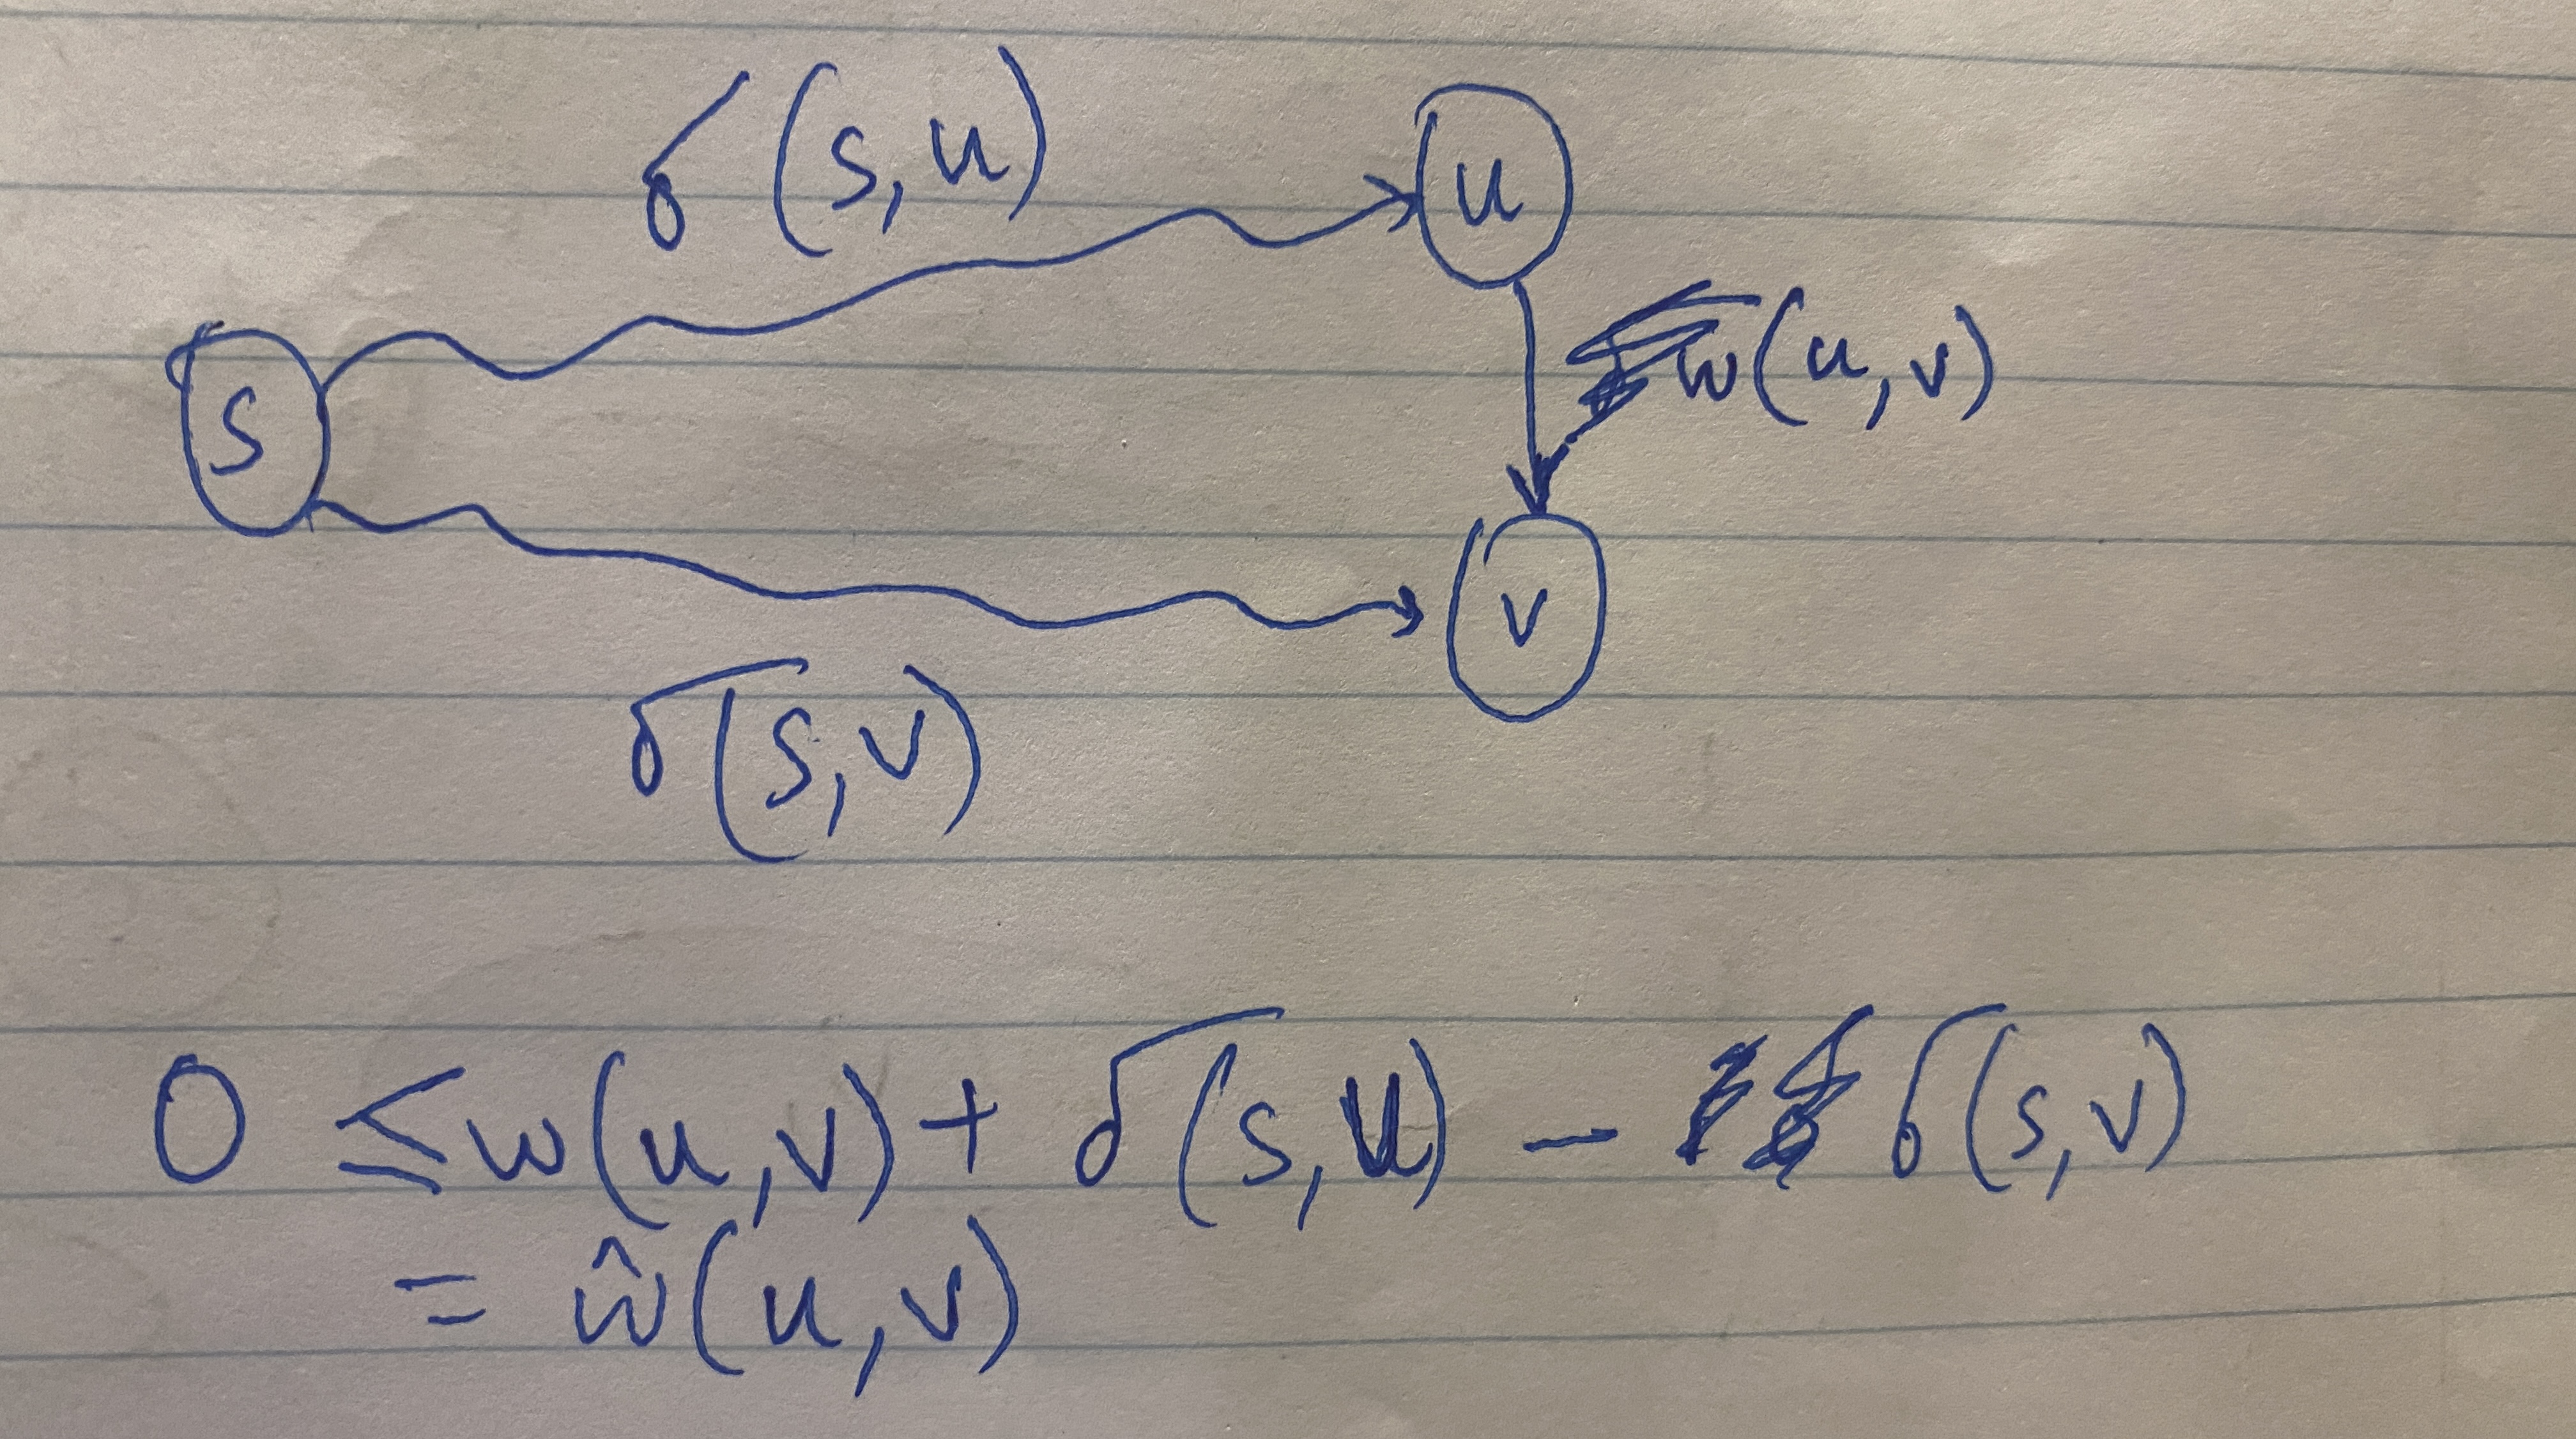 δ(s,u)
u
w(u,v)
s
v
δ(s,v)
0 ≤ w(u,v) + δ(s,u) - δ(s,v)
= ŵ(u,v)